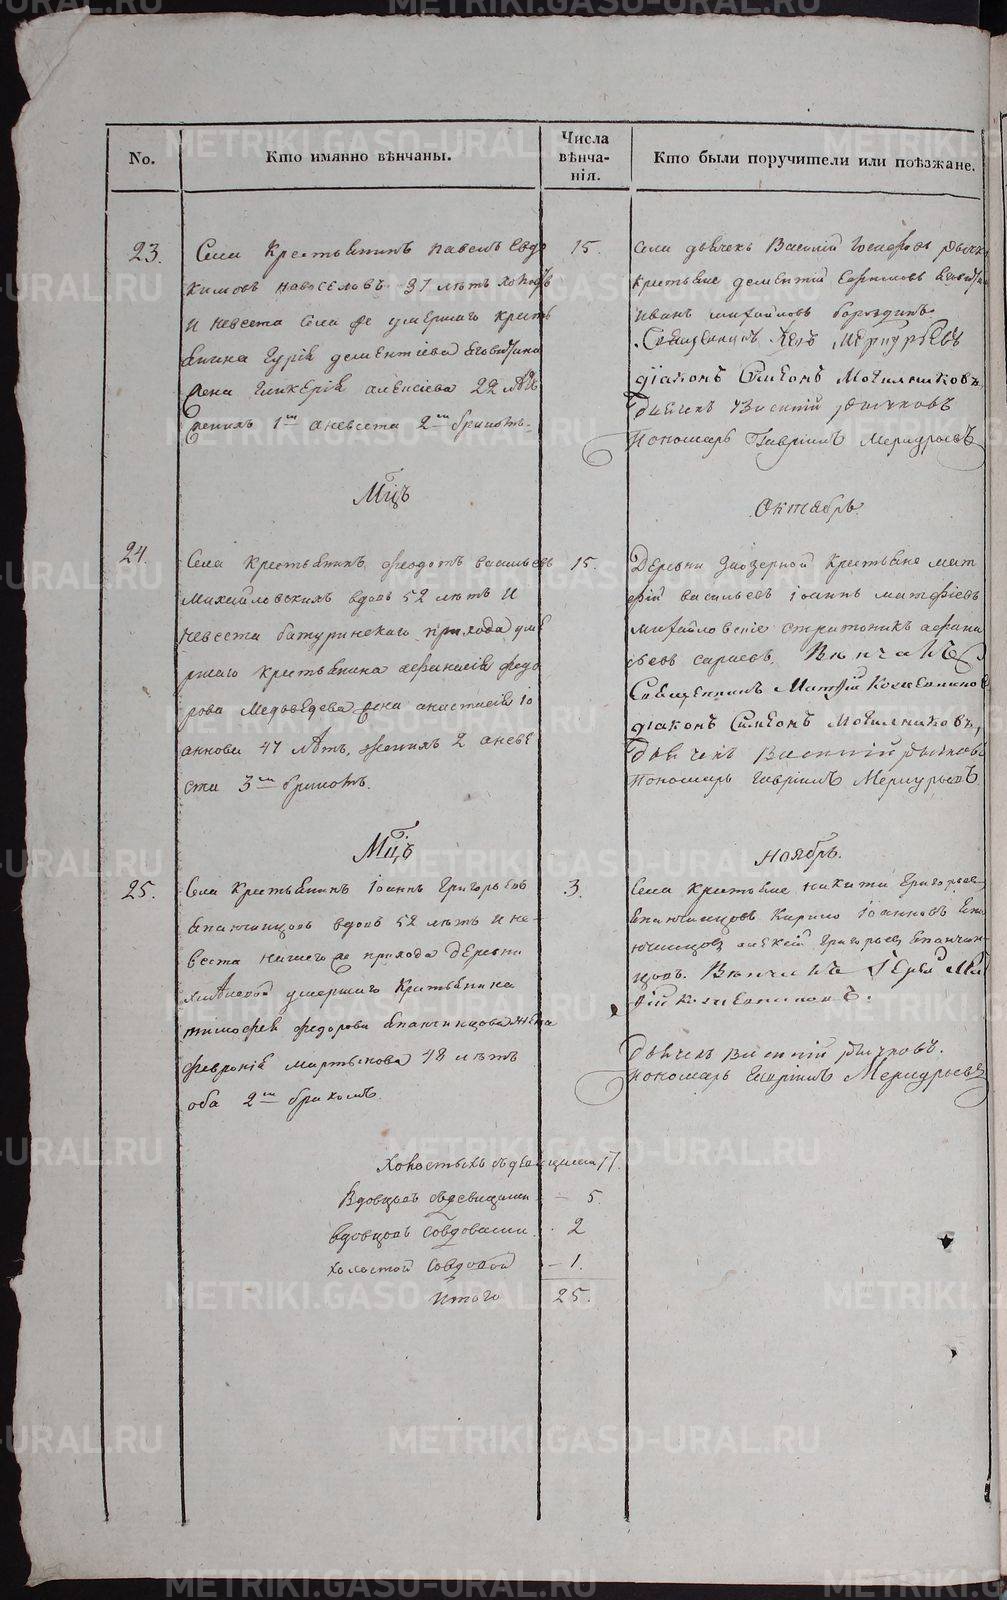 No.
Кто имянно вѣнчаны.
Числа
вѣнча-
нія.
Кто были поручители или поѣзжане.
23.
Села Крестьянинъ павелъ Евдо
кимовъ Новоселовъ 37 лѣтъ холостъ
и невеста села же умершаго кресть
янина Гурія дементіева
жена гликерія алексіева 22 лѣтъ
женихъ 1мъ а невеста 2мъ бракомъ.
15.
села дьячекъ Василій рычков
крестьяне дементій Ефимовъ
иванъ михайловъ бороздинъ.
Священникъ Меркурьевъ
діаконъ Симеонъ Могильниковъ
дьячекъ Василій рычковъ
Пономарь Гавріилъ Меркурьевъ
Мцъ
Октябрь.
24.
Села крестьянинъ феодотъ васильевъ
Михайловскихъ вдовъ 52 лѣтъ и
невеста батуринскаго прихода уме
ршаго крестьянина афанасія федо
рова Медведева жена анастасія іо
аннова 47 лѣтъ, женихъ 2 а неве
ста 3мъ бракомъ.
15.
Деревни Заозерной Крестьяне мат
фій васильевъ іоаннъ матфіевъ
михайловскіе стратоникъ афана
сьевъ сараевъ. Вѣнчалъ
Священникъ Матфій
діаконъ Симеонъ Могильниковъ,
дьячекъ Василій рычковъ
Пономарь гавріилъ Меркурьевъ
Мцъ
Ноябрь.
25.
Села крестьянинъ іоаннъ Григорьевъ
Епанчинцовъ вдовъ 52 лѣтъ и не-
веста нашего же прихода деревни
умершаго Крестьянина
тимофея федорова Епанчинцова жена
феврония мартынова 48 лѣтъ
оба 2мъ бракомъ.
3.
Села крестьяне никита григорьев
Епанчинцовъ Кирило іоанновъ Епа
нчинцов алексій григорьев Епанчин-
цовъ. Вѣнчалъ Іерей Мат
фій
дьячекъ василій рычковъ.
пономарь гавріилъ Меркурьевъ
Холостыхъ съ девицами 17.
Вдовцовъ съ девицами — 5
вдовцовъ совдовами. . 2
холостой совдовой — 1.
Итого 25.
METRIKI.GASO-URAL.RU